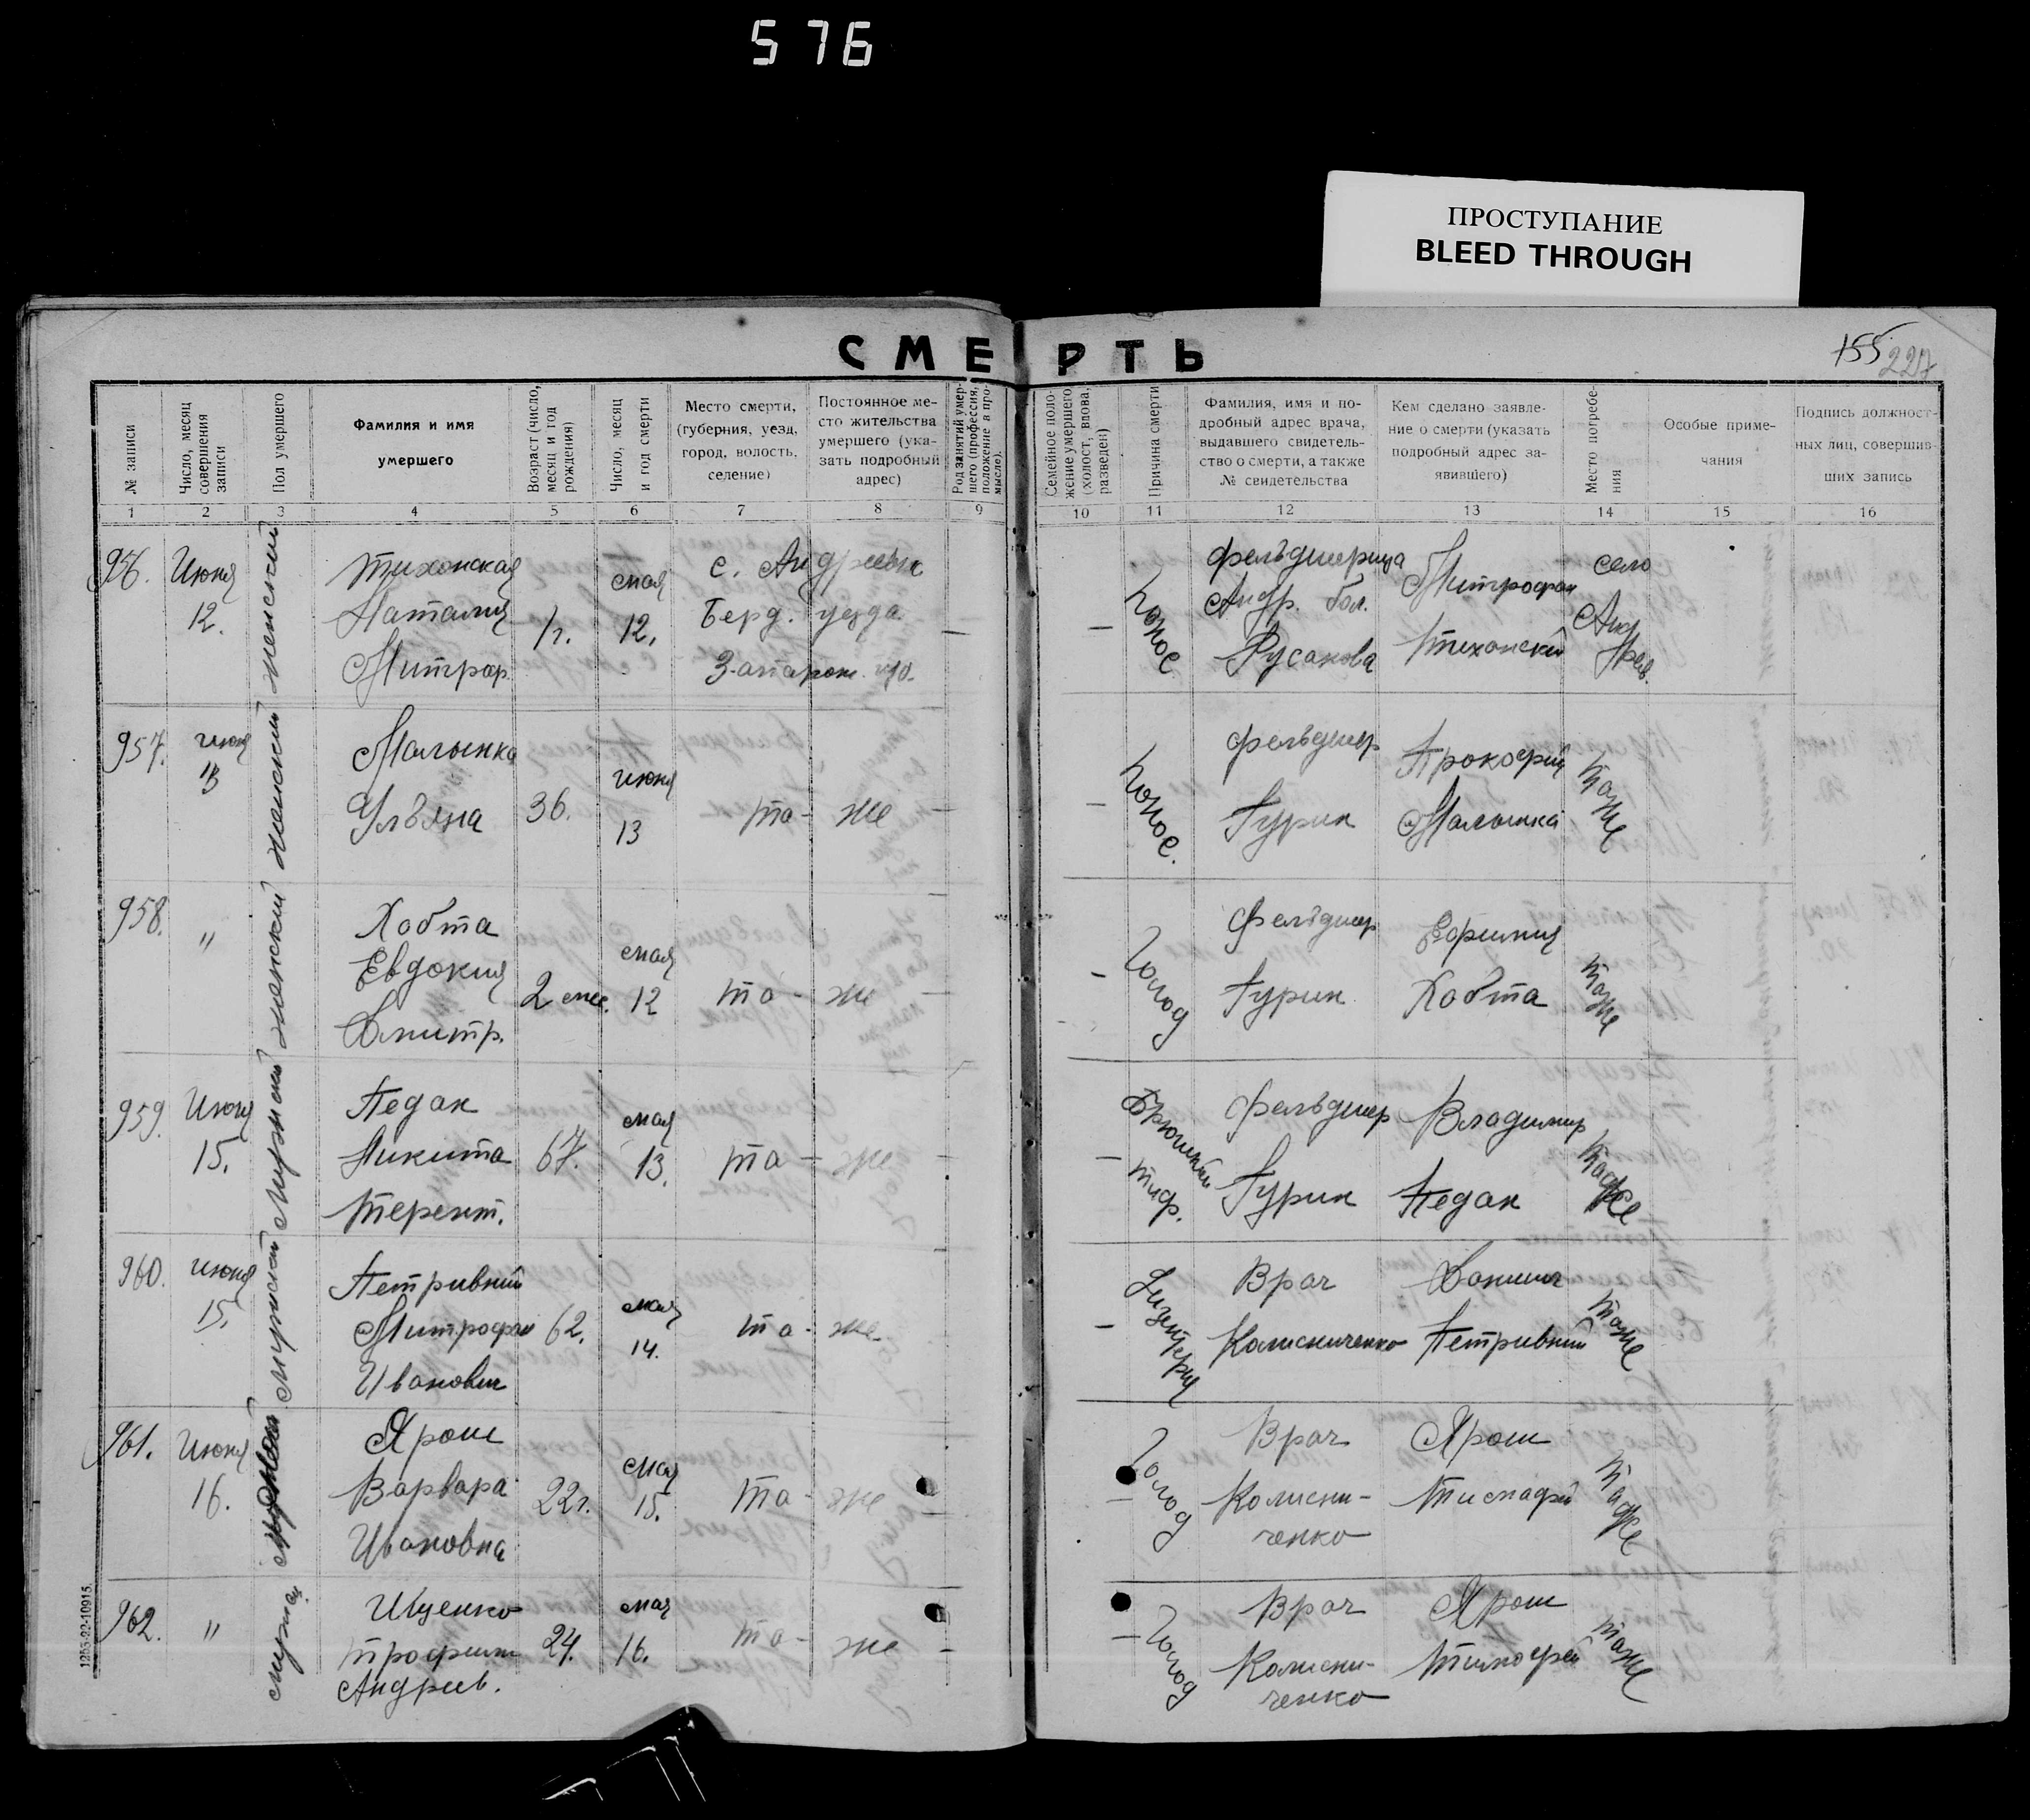 576
ПРОСТУПАНИЕ
BLEED THROUGH
СМЕРТЬ
155 227
№ записи
Число, месяц совершения записи
Пол умершего
Фамилия и имя умершего
Возраст (число, месяц и год рождения)
Число, месяц и год смерти
Место смерти, (губерния, уезд, город, волость, селение)
Постоянное место жительства умершего (указать подробный адрес)
Род занятий умершего (профессия, положение в промысле).
Семейное положение умершего (холост, вдова, разведен)
Причина смерти
Фамилия, имя и подробный адрес врача, выдавшего свидетельство о смерти, а также № свидетельства
Кем сделано заявление о смерти (указать подробный адрес заявившего)
Место погребения
Особые примечания
Подпись должностных лиц, совершивших запись
1 2 3 4 5 6 7 8 9 10 11 12 13 14 15 16
956. Июня 12. женский Тихонская Наталия Митроф. 1 г. мая 12. с. Андреевк Берд. уезда Запарож. губ. — — понос фельдшерица Андр. бол. Русанова Митрофан Тихонский село Андреев.
957. июня 13 женский Малынка Ульяна 36. июня 13 та-же — — понос. фельдшер Гурин Прокофий Малынка таже
958. " женский Хобта Евдокия Дмитр. 2 мес. мая 12 та-же — — голод фельдшер Гурин Ефимия Хобта таже
959. Июня 15. мужской Педан Никита Терент. 67. мая 13. та-же — Брюшний тиф. фельдшер Гурин Владимир Педан таже
960. июня 15. мужской Петривний Митрофан Иванович 62. мая 14. та-же — Дизентрия Врач Колисниченко Петривний таже
961. Июня 16. Ярош Варвара Ивановна 22 г. мая 15. та-же — голод Врач Колисниченко Ярош Тимофей таже
962. " мужск Ищенко Трофим Андреев. 24. мая 16. та-же — — голод Врач Колисниченко Ярош Тимофей таже
1255-22-10915.